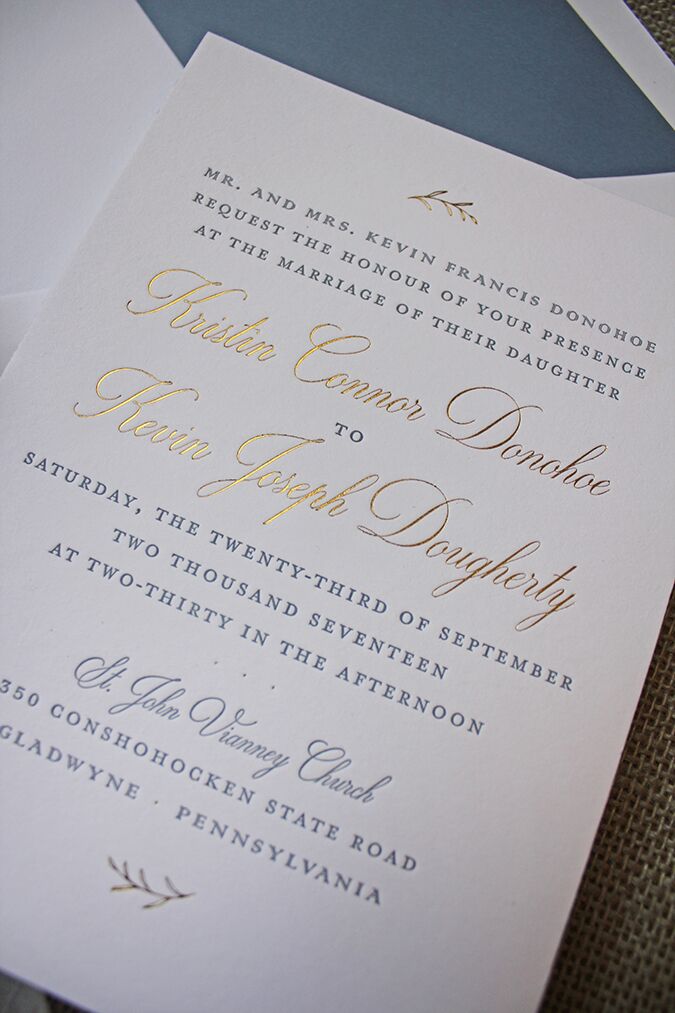 MR. AND MRS. KEVIN FRANCIS DONOHOE
REQUEST THE HONOUR OF YOUR PRESENCE
AT THE MARRIAGE OF THEIR DAUGHTER
Kristin Connor Donohoe
TO
Kevin Joseph Dougherty
SATURDAY, THE TWENTY-THIRD OF SEPTEMBER
TWO THOUSAND SEVENTEEN
AT TWO-THIRTY IN THE AFTERNOON
St. John Vianney Church
350 CONSHOHOCKEN STATE ROAD
GLADWYNE · PENNSYLVANIA